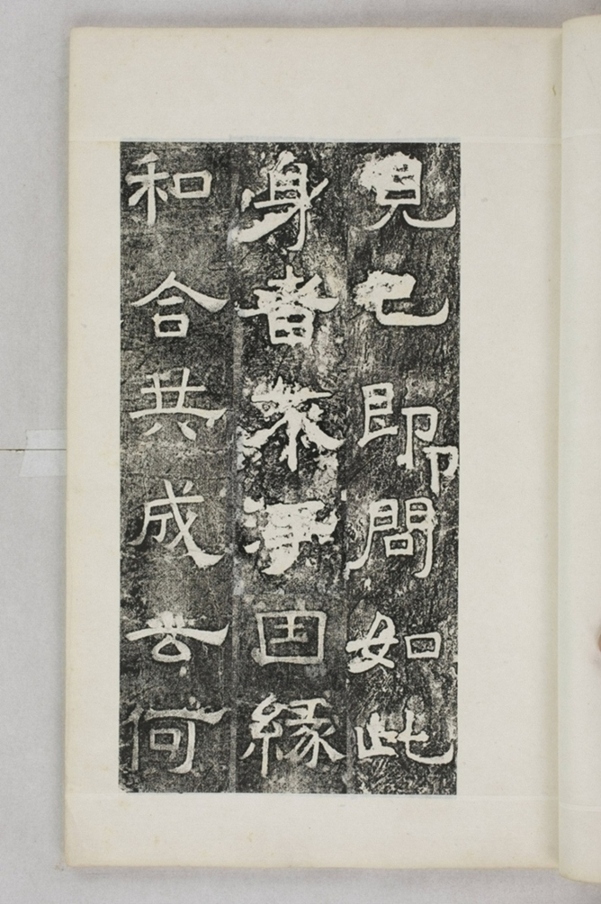 見已即問如此
身者不淨因緣
和合共成云何